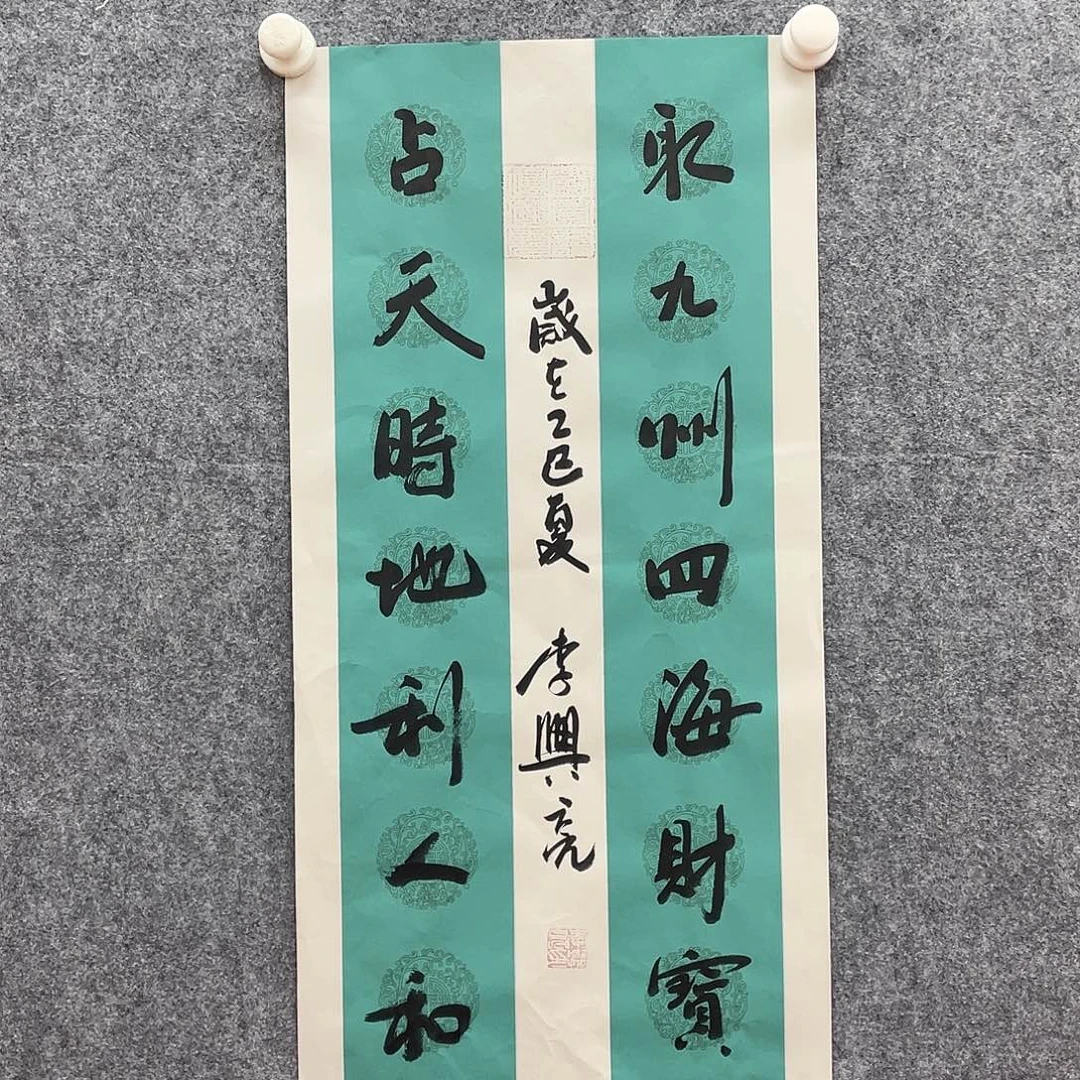 取九州四海財寶
歲在乙巳夏 李興亮
占天時地利人和